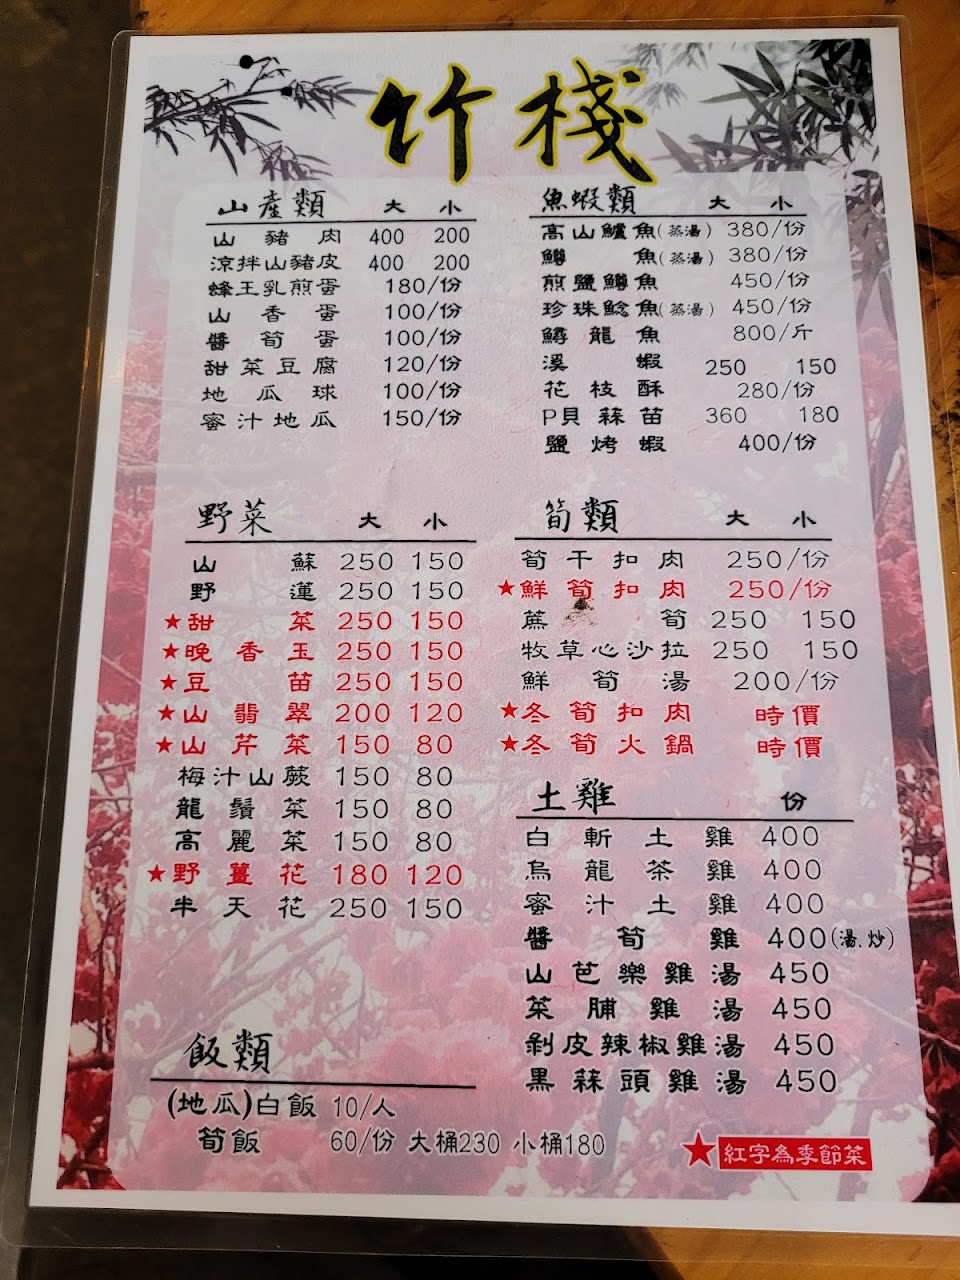 竹棧
山產類 大 小
山豬肉 400 200
涼拌山豬皮 400 200
蜂王乳煎蛋 180/份
山香蛋 100/份
醬筍蛋 100/份
甜菜豆腐 120/份
地瓜球 100/份
蜜汁地瓜 150/份
魚蝦類 大 小
高山鱸魚(蒸湯) 380/份
鱒魚(蒸湯) 380/份
煎鹽鱒魚 450/份
珍珠鯰魚(蒸湯) 450/份
鱘龍魚 800/斤
溪蝦 250 150
花枝酥 280/份
P貝蒜苗 360 180
鹽烤蝦 400/份
野菜 大 小
山蘇 250 150
野蓮 250 150
★甜菜 250 150
★晚香玉 250 150
★豆苗 250 150
★山翡翠 200 120
★山芹菜 150 80
梅汁山蕨 150 80
龍鬚菜 150 80
高麗菜 150 80
★野薑花 180 120
半天花 250 150
筍類 大 小
筍干扣肉 250/份
★鮮筍扣肉 250/份
蔗筍 250 150
牧草心沙拉 250 150
鮮筍湯 200/份
★冬筍扣肉 時價
★冬筍火鍋 時價
土雞 份
白斬土雞 400
烏龍茶雞 400
蜜汁土雞 400
醬筍雞 400(湯.炒)
山芭樂雞湯 450
菜脯雞湯 450
剝皮辣椒雞湯 450
黑蒜頭雞湯 450
飯類
(地瓜)白飯 10/人
筍飯 60/份 大桶230 小桶180
★紅字為季節菜